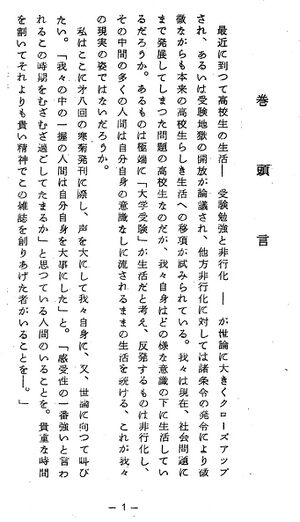 巻頭言
最近に到つて高校生の生活― 受験勉強と非行化 ―が世論に大きくクローズアップ
され、あるいは受験地獄の開放が論議され、他方非行化に対しては諸条令の発令により微
微ながらも本来の高校生らしき生活への移項が試みられている。我々は現在、社会問題に
まで発展してしまつた問題の高校生なのだが、我々自身はどの様な意識の下に生活してい
るだろうか。あるものは極端に「大学受験」が生活だと考え、反発するものは非行化し、
その中間の多くの人間は自分自身の意識なしに流されるままの生活を続ける、これが我々
の現実の姿ではないだろうか。
私はここに才八回の寒菊発刊に際し、声を大にして我々自身に、又、世論に向つて叫び
たい。「我々の中の一握の人間は自分自身を大事にした」と。「感受性の一番強いと言わ
れるこの時期をむざむざ過ごしてたまるか」と思つている人間のいることを。貴重な時間
を割いてそれよりも貴い精神でこの雑誌を創りあげた者がいることを―。」
― 1 ―